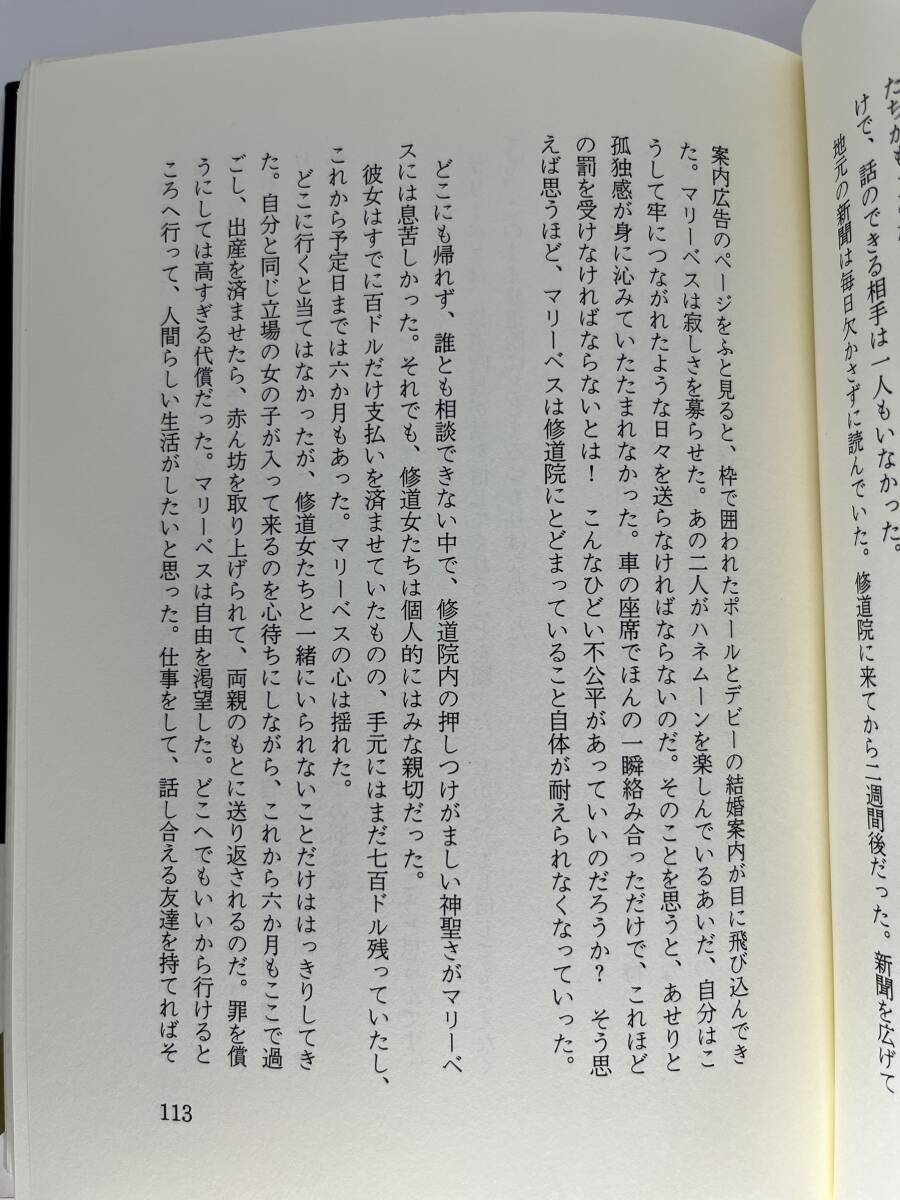 けで、話のできる相手は一人もいなかった。
地元の新聞は毎日欠かさずに読んでいた。修道院に来てから二週間後だった。新聞を広げて
案内広告のページをふと見ると、枠で囲われたポールとデビーの結婚案内が目に飛び込んでき
た。マリーベスは寂しさを募らせた。あの二人がハネムーンを楽しんでいるあいだ、自分はこ
うして牢につながれたような日々を送らなければならないのだ。そのことを思うと、あせりと
孤独感が身に沁みていたたまれなかった。車の座席でほんの一瞬絡み合っただけで、これほど
の罰を受けなければならないとは！　こんなひどい不公平があっていいのだろうか？　そう思
えば思うほど、マリーベスは修道院にとどまっていること自体が耐えられなくなっていった。
どこにも帰れず、誰とも相談できない中で、修道院内の押しつけがましい神聖さがマリーベ
スには息苦しかった。それでも、修道女たちは個人的にはみな親切だった。
彼女はすでに百ドルだけ支払いを済ませていたものの、手元にはまだ七百ドル残っていたし、
これから予定日までは六か月もあった。マリーベスの心は揺れた。
どこに行くと当てはなかったが、修道女たちと一緒にいられないことだけははっきりしてき
た。自分と同じ立場の女の子が入って来るのを心待ちにしながら、これから六か月もここで過
ごし、出産を済ませたら、赤ん坊を取り上げられて、両親のもとに送り返されるのだ。罪を償
うにしては高すぎる代償だった。マリーベスは自由を渇望した。どこへでもいいから行けると
ころへ行って、人間らしい生活がしたいと思った。仕事をして、話し合える友達を持てればそ
113